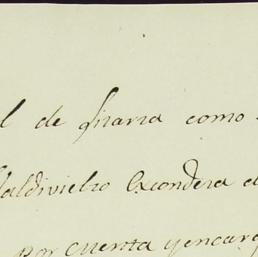 l de fiarza como
Valdivielso Escondera d
por cuenta y encarg